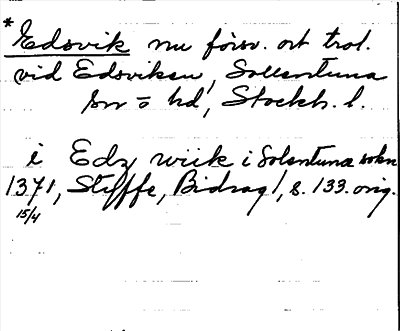 * Edsvik nu försv. ort trol.
vid Edsviken, Sollentuna
sn o hd, Stockh. l.
i Edz wiik i Solentuna sokn
1371, Styffe, Bidrag 1, s. 133. orig.
15/4